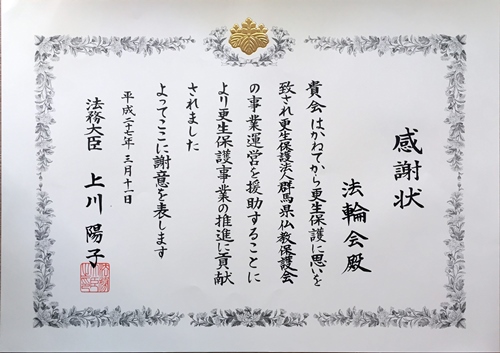 感謝状
法輪会殿
貴会はかねてから更生保護に思いを
致され更生保護法人群馬県仏教保護会
の事業運営を援助することに
より更生保護事業の推進に貢献
されました
よってここに謝意を表します
平成二十七年三月十一日
法務大臣 上川陽子